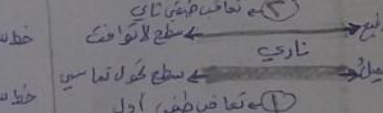 ② تعاقب طبقي ثاني
سطح لا توافق
خط
ناري
سطح تحول تماسي
خط
① تعاقب طبقي أول